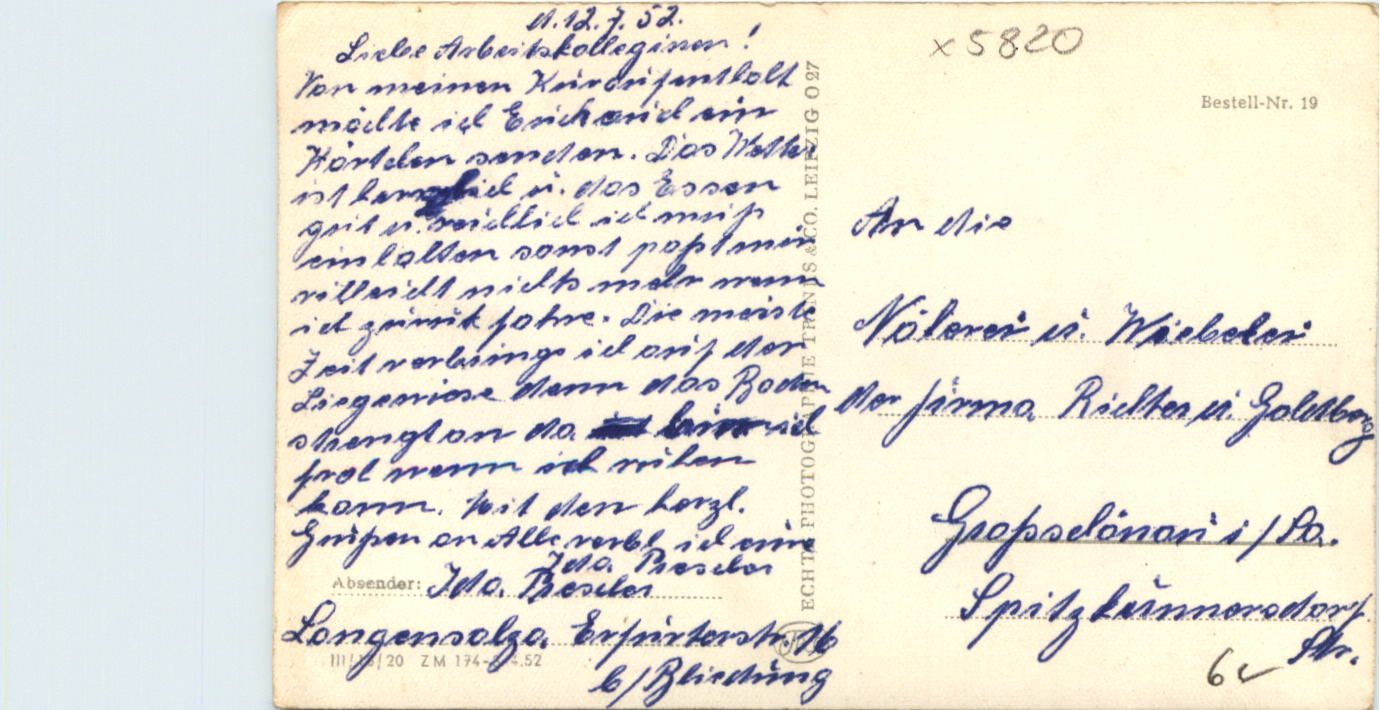 d. 12.7.52.
Liebe Arbeitskolleginen!
Von meinen Kuraufenthalt
möchte ich Euch auch ein
Kärtchen senden. Das Wetter
ist herrlich u. das Essen
gut u. reichlich ich muß
einhalten sonst paßt mir
villeicht nichts mehr wenn
ich zurück fahre. Die meiste
Zeit verbringe ich auf der
Liegewiese denn das Baden
strengt an da bin ich
froh wenn ich ruhen
kann. Mit den herzl.
Grüßen an Alle verbl. ich eure
Ida Preseler
Absender: Ida. Preseler
Langensalza. Erfurterstr. 16
b/Bliedung
III/18/20 ZM 174- 4.52
ECHTE PHOTOGRAPHIE TRINKS & CO. LEIPZIG O 27
x 5820
Bestell-Nr. 19
An die
Näherei u. Weberei
der Firma Richter u Goldberg
Großschönau i/Sa.
Spitzkunnersdorf
Str.
6